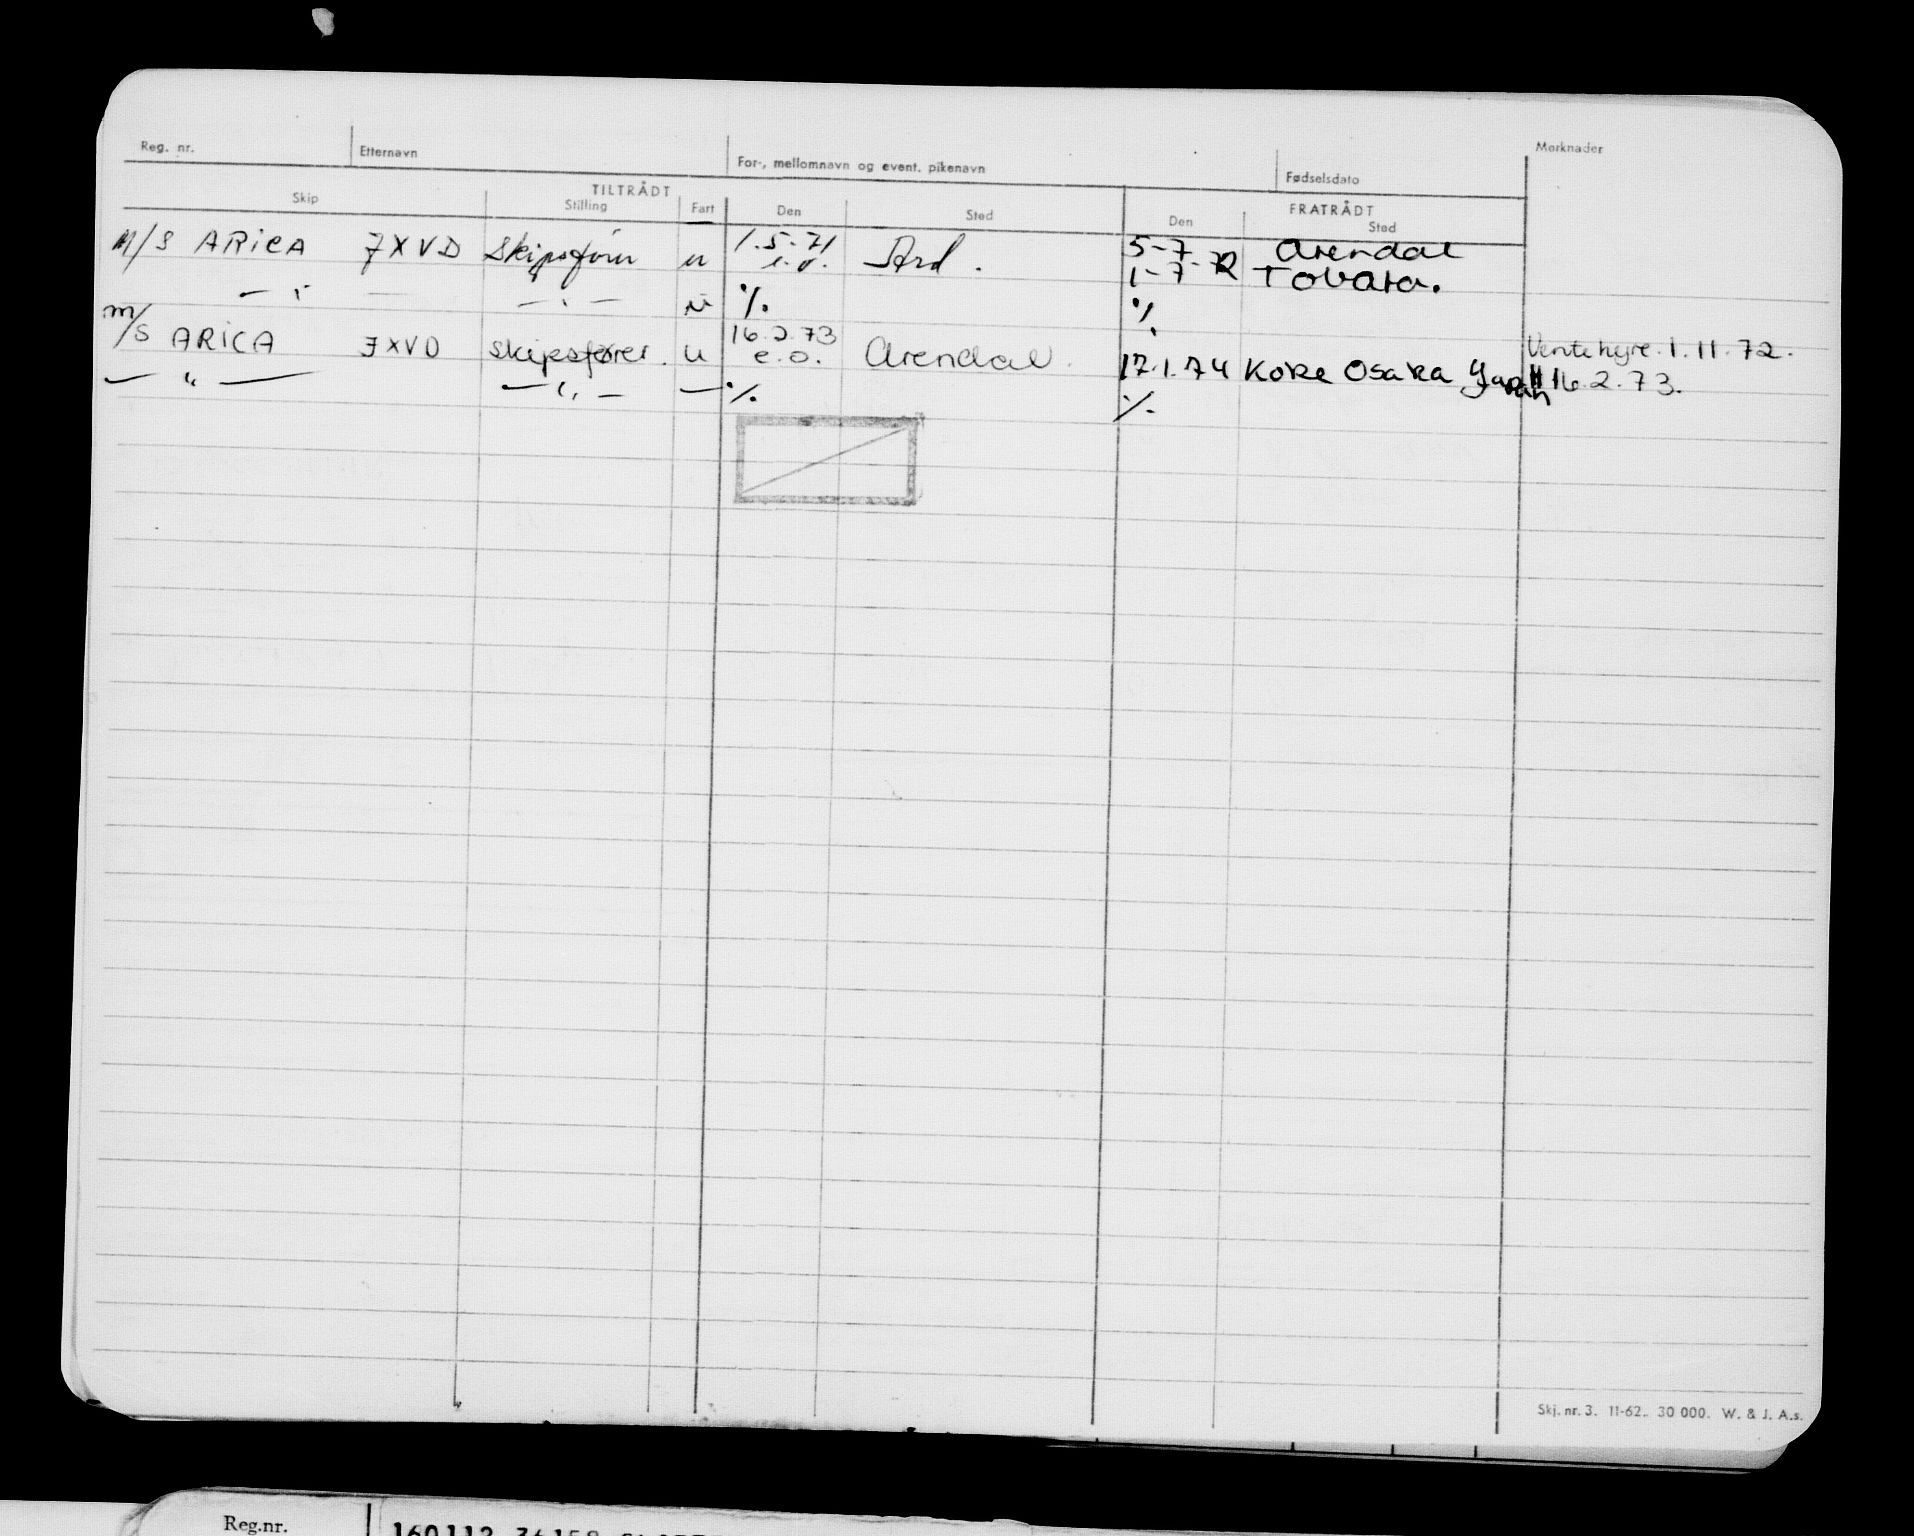 Reg. nr. Etternavn For-, mellomnavn og event. pikenavn Fødselsdato Merknader
TILTRÅDT FRATRÅDT
Skip Stilling Fart Den Sted Den Sted
M/S ARICA JXVD Skipsfører u 1.5.71 e.o. Ard. 5-7 Arendal
1-7-72 Tobata.
— " — — " — u ·/. ·/.
m/s ARICA JXVD skipsfører. u 16.2.73 e.o. Arendal. 17.1.74 Kobe Osaka Japan Ventehyre. 1.11.72.
— " — — " — — ·/. ·/. 16.2.73.
Skj. nr. 3. 11-62. 30 000. W. & J. A.s.
Reg.nr. 160112